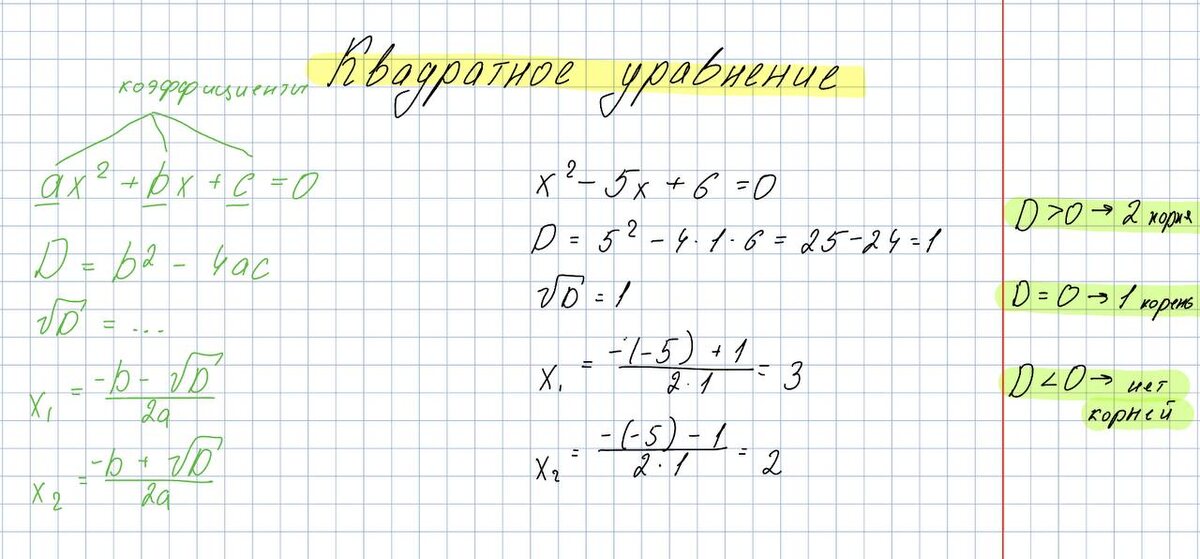 Квадратное уравнение
коэффициенты
ax² + bx + c = 0
D = b² - 4ac
√D = ...
x₁ = (-b - √D) / 2a
x₂ = (-b + √D) / 2a
x² - 5x + 6 = 0
D = 5² - 4·1·6 = 25-24=1
√D = 1
x₁ = (-(-5) + 1) / 2·1 = 3
x₂ = (-(-5) - 1) / 2·1 = 2
D>0 → 2 корня
D=0 → 1 корень
D<0 → нет
корней